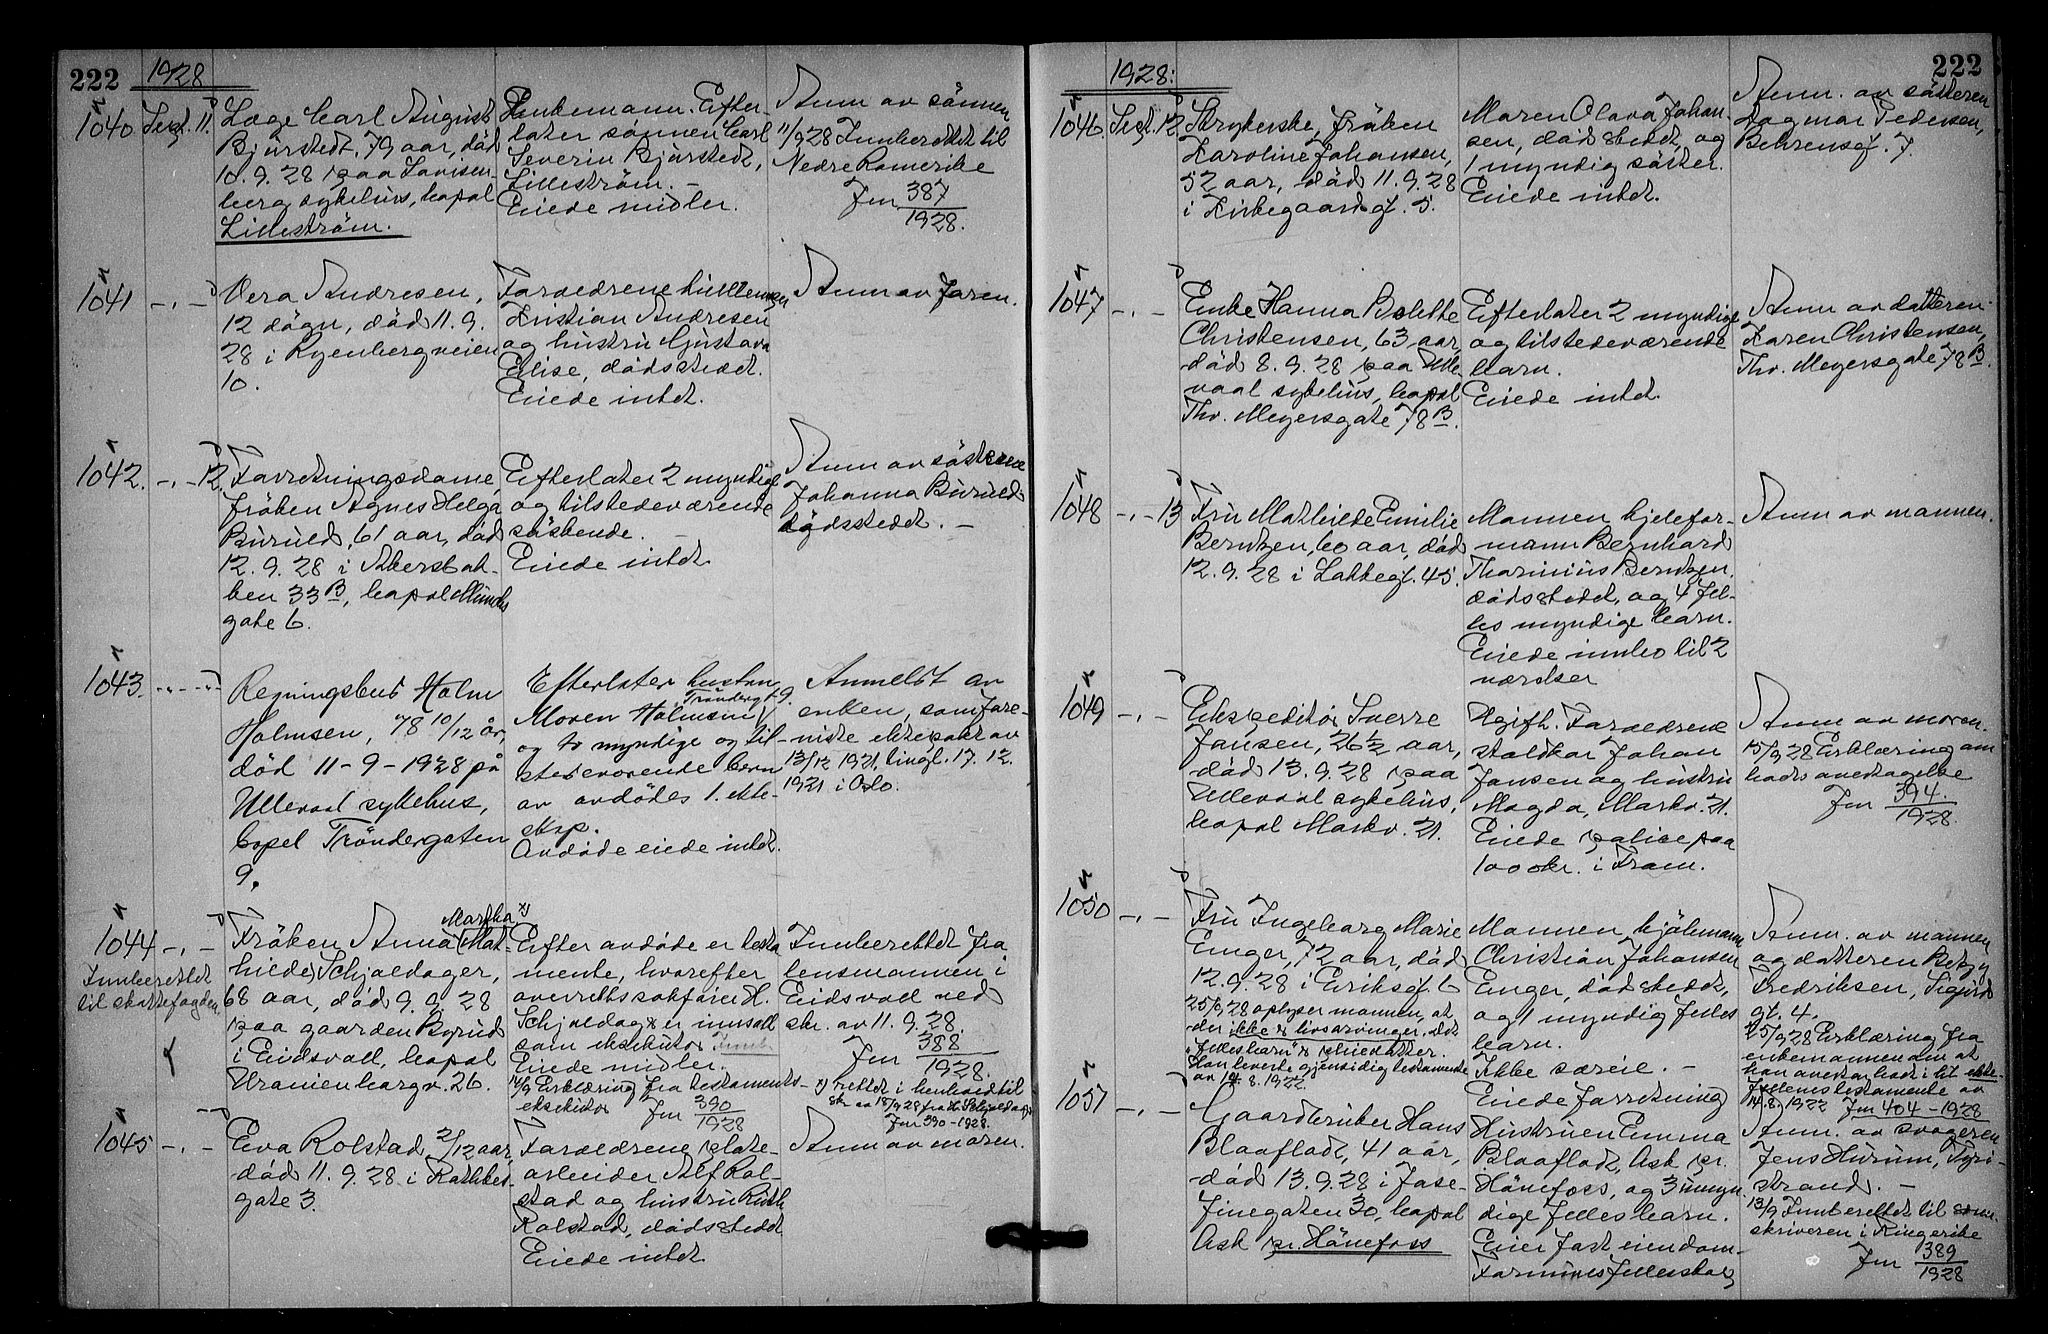 222
1928
1040. Sept. 11.
Læge Carl August
Bjørstedt, 79 aar, död
10.9.28 paa Lovisen-
berg sykehus, bopæl
Lilleström.
Enkemann. Efter-
later sönnen Carl
Severin Bjørstedt,
Lilleström. -
Eiede midler.
Anm av sönnen
11/9 28 Innberettet til
Nedre Romerike
Jnr 387
1928.
1041 -"-
Vera Andresen,
12 dögn, död 11.9.
28 i Ryenbergveien
10.
Foreldrene
Kristian Andresen
og hustru Gustava
Elise, dödsstedet.
Eiede intet.
Anm av faren.
1042. -"- 12.
Forretningsdame,
fröken Agnes Helga
Buruld, 61 aar, död
12.9.28 i Akersbak-
ken 33B, bopæl Munchs
gate 6.
Efterlater 2 myndige
og tilstedeværende
söskende. -
Eiede intet.
Anm av sösteren
Johanna Buruld
dödsstedet. -
1043. -"-
Regningsbud Holm
Holmsen, 78 10/12 år,
död 11-9-1928 på
Ullevaal sykehus,
bopel Tröndergaten
9.
Efterlater hustru
Tröndergt 9.
Maren Holmsen
og to myndige og til-
stedeværende bern
av avdödes 1. ekte-
skap.
Avdöde eiede intet.
Anmeldt av
enken, som fore-
viste ektepakt av
13/12 1921, tingl. 17.12.
1921 i Oslo.
1044 -"-
Innberettet
til skiftefogden
Martha x)
Fröken Anna (Mat-
hilde) Schjoldager,
68 aar, död 9.9.28
paa gaarden Byrud
i Eidsvoll, bopæl
Uranienborgv. 26.
Efter avdöde er testa
mente, hvorefter
overrettssakförer H.
Schjoldager er innsatt
som eksekutor
Eiede midler.
14/9 Erklæring fra testaments-
eksekutor Jnr 390
1928
Innberettet fra
lensmannen i
Eidsvoll ved
skr. av 11.9.28.
Jnr 388
1928.
x) rettet i henhold til
skr av 18/9 28 fra H. Schjoldager
Jnr 390-1928.
1045 -"-
Eva Rolstad, 2/12 aar,
död 11.9.28 i Rathkes
gate 3.
Foreldrene plate-
arbeider Alf Rol-
stad og hustru Ruth
Rolstad, dödsstedet
Eiede intet
Anm av moren.
222
1928:
1046. Sept. 12
Strykerske, fröken
Karoline Johansen,
52 aar, död 11.9.28
i Kirkegaardsgt. 5.
Moren Olava Johan-
sen, dödsstedet, og
1 myndig söster.
Eiede intet.
Anm. av sösteren
Dagmar Pedersen,
Behrensgt. 7.
1047 -"-
Enke Hanna Bolette
Christensen, 63 aar,
död 8.9.28 paa Ulle-
vaal sykehus, bopæl
Thv. Meyersgate 78B.
Efterlater 2 myndige
og tilstedeværende
barn.
Eiede intet.
Anm av datteren
Karen Christensen,
Thv. Meyersgate 78B.
1048 -"- 13
Fru Mathilde Emilie
Berntzen, 60 aar, död
12.9.28 i Lakkegt. 45.
Mannen kjelefor-
mann Bernhard
Berntzen,
dödsstedet, og 4 fel-
les myndige barn.
Eiede innbo til 2
værelser
Anm av mannen.
1049 -"-
Ekspeditör Sverre
Jansen, 26½ aar,
död 13.9.28 paa
Ullevaal sykehus,
bopæl Markv. 21.
Ugift. Foreldrene
staldkar Johan
Jansen og hustru
Magda, Markv. 21.
Eiede polise paa
1000 kr. i Fram.
Anm av moren.
15/9 28 Erklæring om
bobs overtagelse
Jnr 394
1928.
1050 -"-
Fru Ingeborg Marie
Enger, 72 aar, död
12.9.28 i Eriksgt. 6
25/9 28 oplyser mannen, at
der ikke er livsarvinger, det
"fellesbarn" er pleiedatter.
Han leverte gjensidig testamente
av 14.8.1922
Mannen kjölemann
Christian Johansen
Enger, dödsstedet,
og 1 myndig felles
barn.
Ikke særeie. -
Eiede forretning
Anm. av mannen
og datteren Betzy
Fredriksen, Sigurds
gt. 4.
25/9 28 Erklæring fra
enkemannen om at
han overtar bo i h.t. ekte-
fellenes testamente av
14.8.1922 Jnr 404-1928
1051 -"-
Gaardbruker Hans
Blaaflodt, 41 aar,
död 13.9.28 i Jose-
finegaten 30, bopæl
Ask pr. Hönefoss
Hustruen Emma
Blaaflodt, Ask pr.
Hönefoss, og 3 umyn
dige fellesbarn.
Eier fast eiendom.
Formues fellesskap
Anm. av svogeren
Jens Hurum, Tyri-
strand. -
13/9 Innberettet til soren-
skriveren i Ringerike
Jnr 389
1928